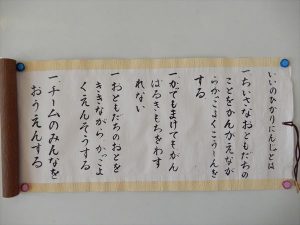 いいのひかりにんじとは
一ちいさなおともだちの
ことをかんがえなが
らかっこよくこうしんを
する
一かってもまけてもがん
ばるきもちをわす
れない
一おともだちのおとを
ききながらかっこよ
くえんそうする
一チームのみんなを
おうえんする